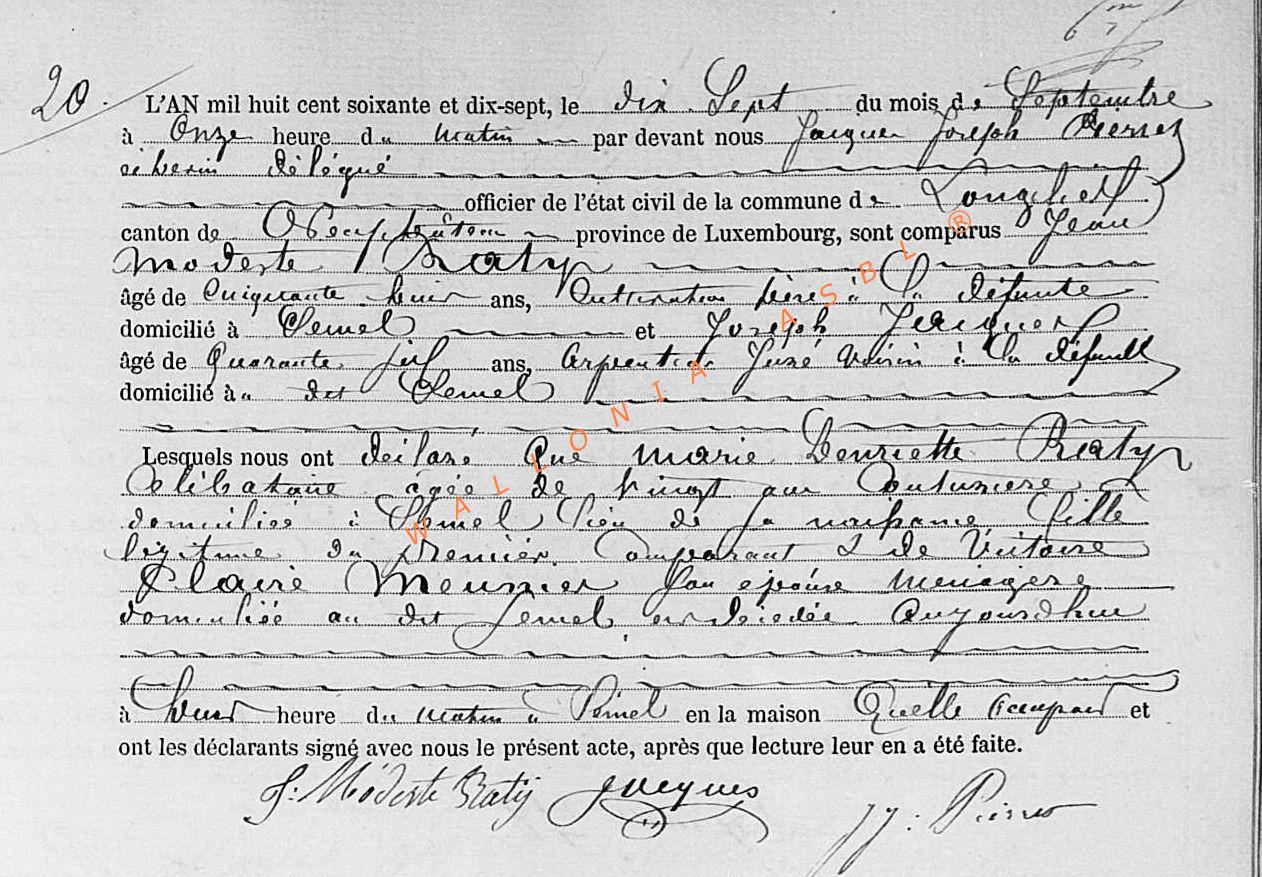 20.
L'AN mil huit cent soixante et dix-sept, le dix Sept du mois de Septembre
à Onze heure du matin par devant nous Jacques Joseph Pierret
échevin délégué
officier de l'état civil de la commune de Longchamps
canton de province de Luxembourg, sont comparus Jean
Modeste Raty
âgé de Cinquante huit ans, Cultivateur père à la défunte
domicilié à Hemel et Joseph Jacques
âgé de Quarante six ans, Arpenteur Juré voisin à la défunte
domicilié à dit Hemel
Lesquels nous ont déclaré Que Marie Henriette Raty
Célibataire âgée de vingt ans Couturière
domiciliée à Hemel lieu de sa naissance fille
légitime du premier Comparant & de Victoire
Claire Meunier son épouse ménagère
domiciliée au dit Hemel est décédée Aujourd'hui
à heure du matin à Hemel en la maison Qu'elle occupait et
ont les déclarants signé avec nous le présent acte, après que lecture leur en a été faite.
J. Modeste Raty Jacques JJ. Pierret
WALLONIA ASBL ®